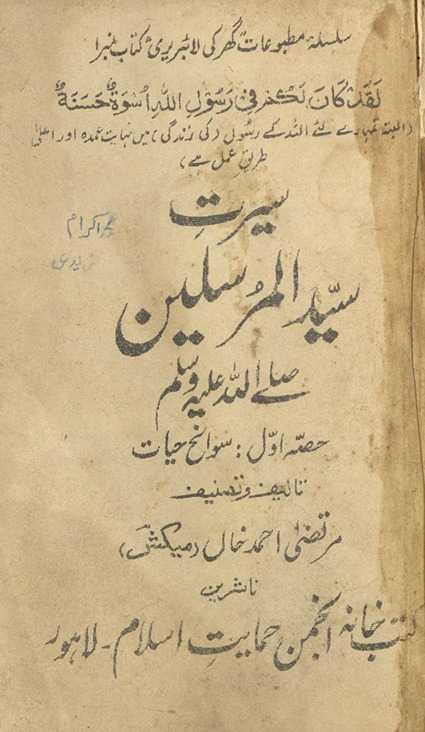 سلسلۂ مطبوعات "گھر کی لائبریری" کتاب نمبر ۱
لَقَدْ كَانَ لَكُمْ فِيْ رَسُوْلِ اللهِ اُسْوَةٌ حَسَنَةٌ
(البتہ تمہارے لئے اللہ کے رسول (کی زندگی) میں نہایت عمدہ اور اعلیٰ
طریق عمل ہے)
سیرتِ
محمد اکرام
سیّد المرسلین
صلے اللہ علیہ وسلم
حصّہ اوّل: سوانح حیات
تالیف و تصنیف
مرتضیٰ احمد خاں (میکش)
ناشرین
کتب خانہ انجمن حمایتِ اسلام - لاہور